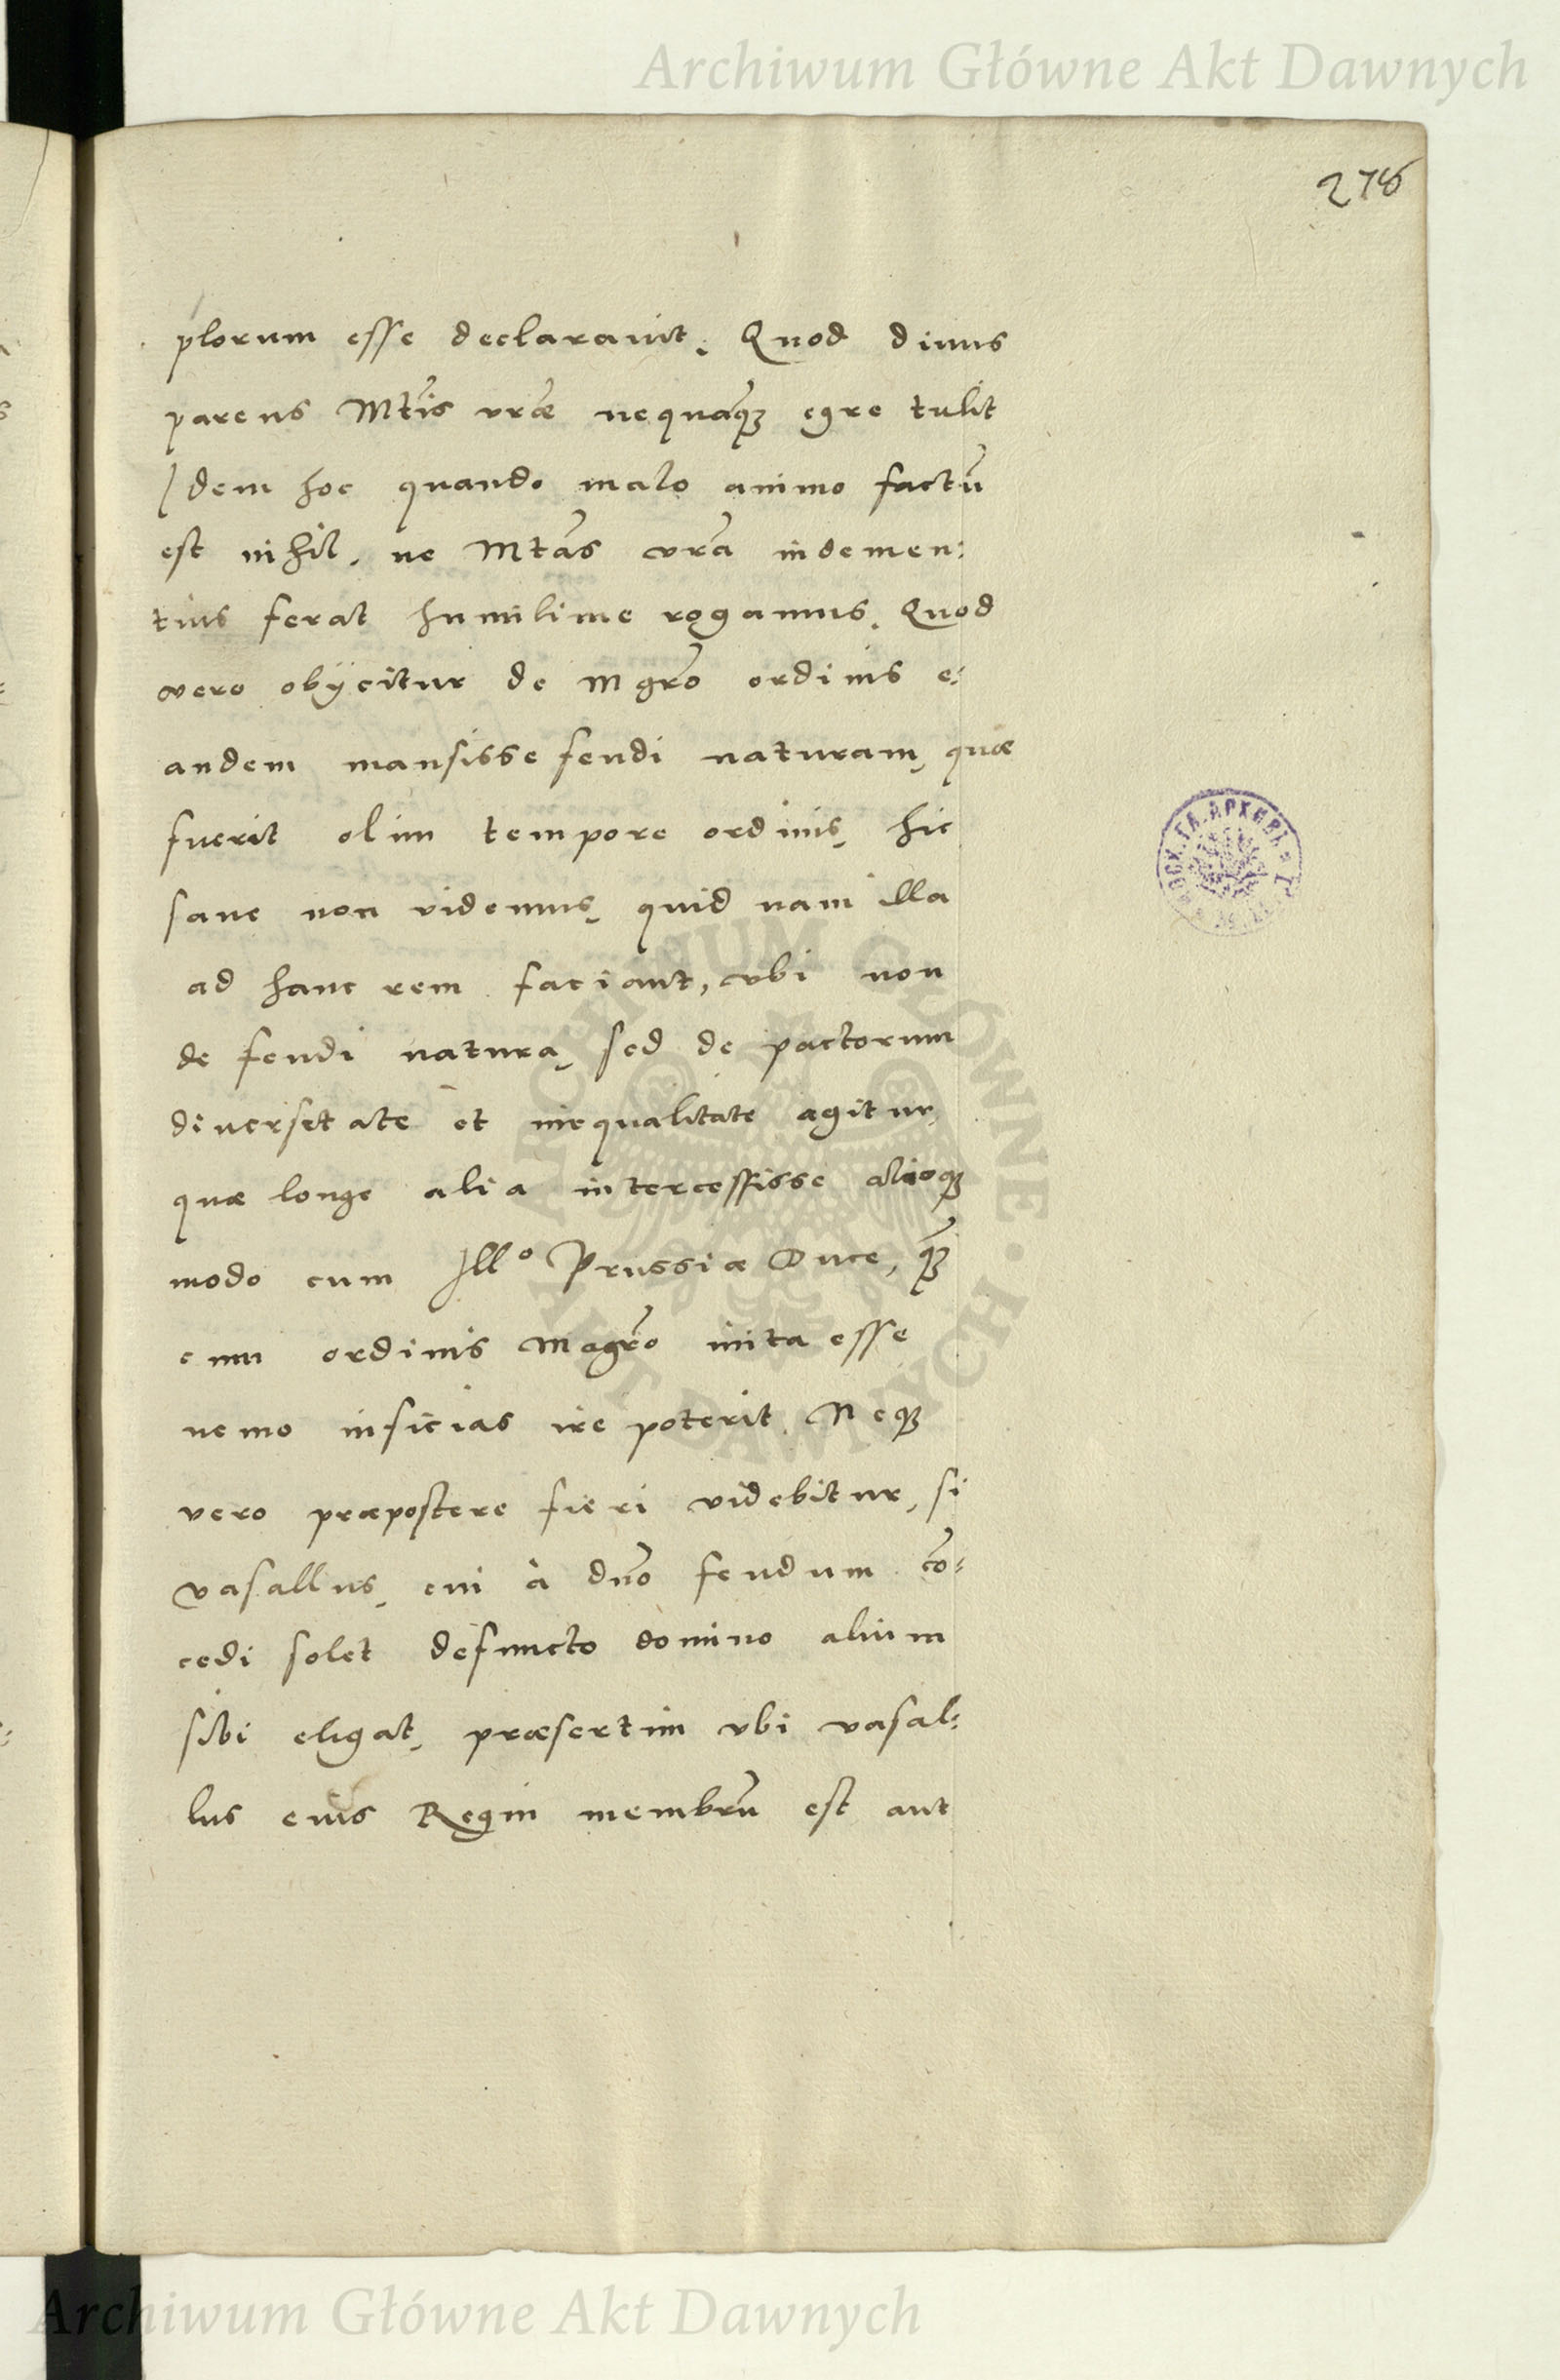 Archiwum Główne Akt Dawnych
278
plorum esse declarauit. Quod diuus
parens Mtis vrae nequaq̃ egre tulit
Idem hoc quando malo animo factũ
est nihil, ne Mtas vra indemen:
tius ferat humilime rogamus. Quod
vero obijcitur de Mgro ordinis e:
andem mansisse feudi naturam, quae
fuerit olim tempore ordinis, hic
sane non videmus, quid nam illa
ad hanc rem faciant, vbi non
de feudi natura, sed de pactorum
diuersitate et inequalitate agitur,
quae longe alia intercessisse alioq̃
modo cum Illo Prussiae Duce, q̃
cum ordinis Magro inita esse
nemo inficias ire poterit. Neq̃
vero praepostere fieri videbitur, si
vasallus, cui à dno feudum cõ:
cedi solet defuncto domino alium
sibi eligat, praesertim vbi vasal:
lus eius Regni membrũ est aut
ARCHIWUM GŁÓWNE · AKT DAWNYCH ·
Archiwum Główne Akt Dawnych